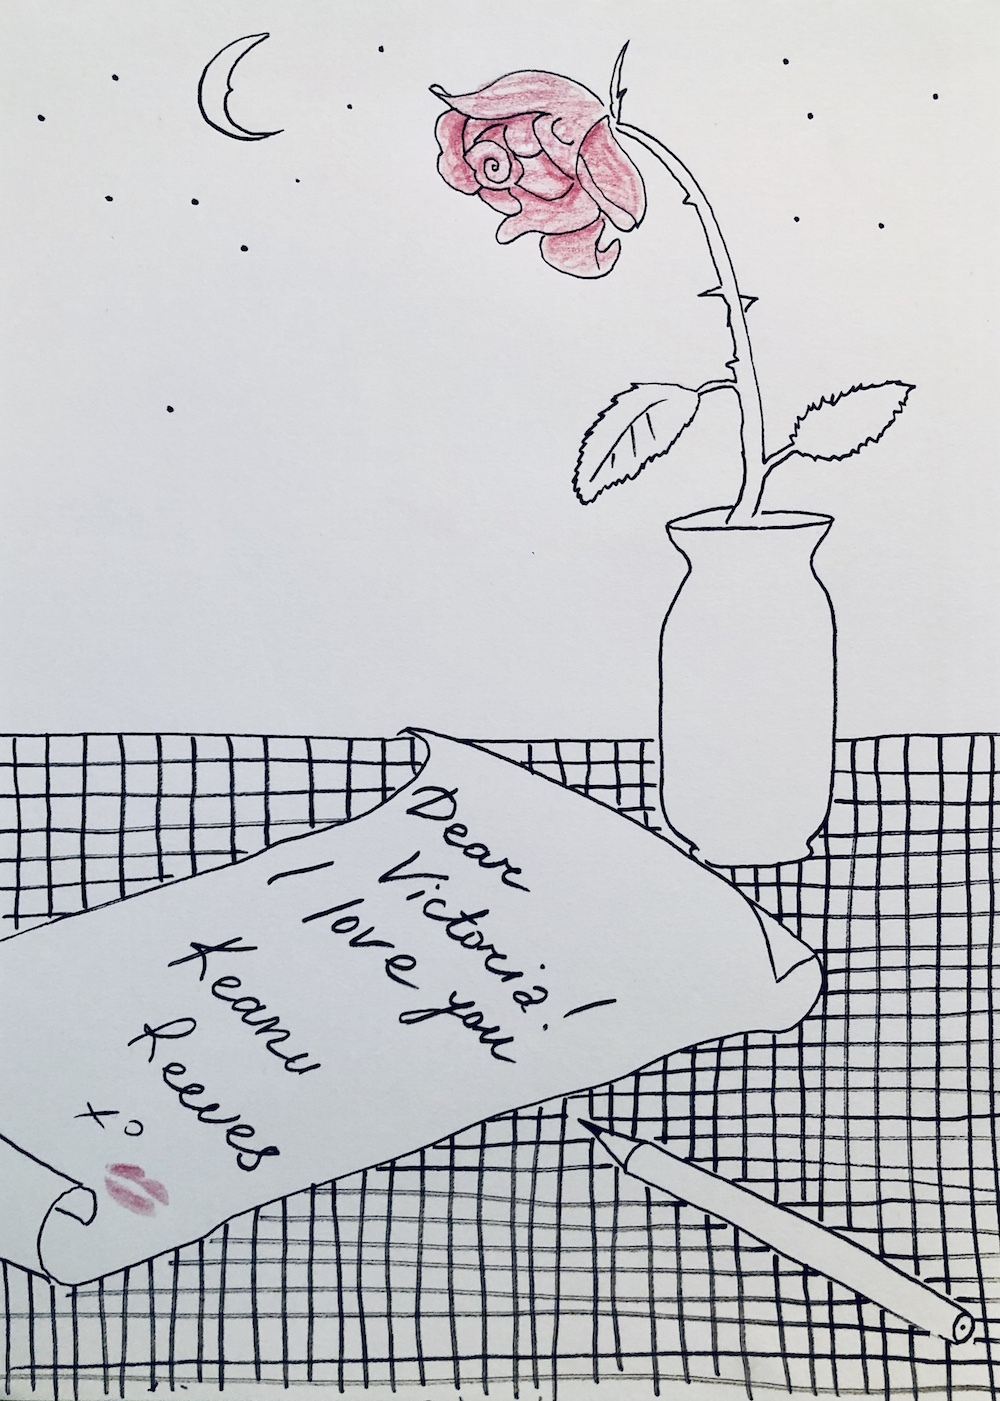 Dear
Victoria!
I love you
Keanu
Reeves
xo